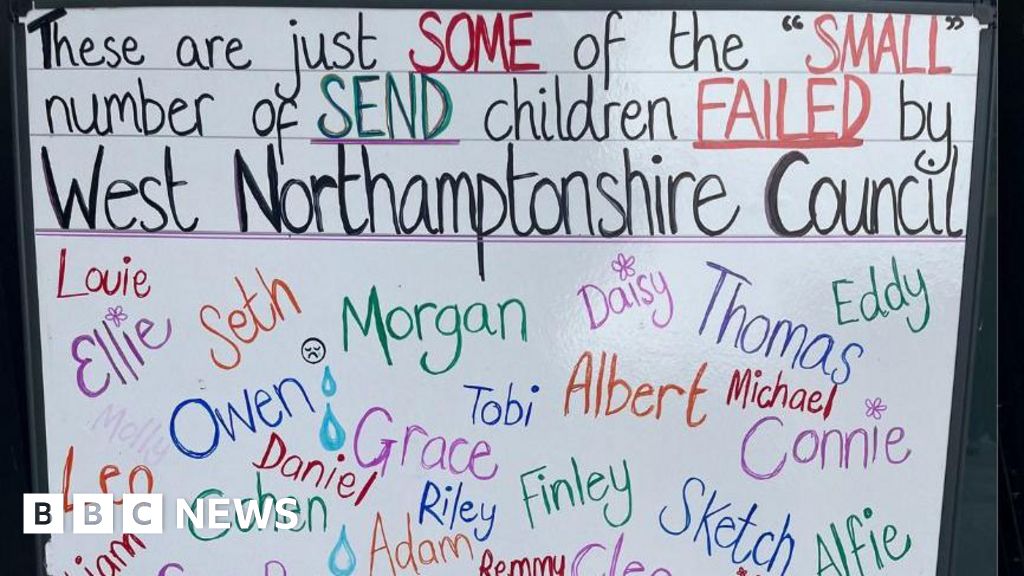 These are just SOME of the “SMALL”
number of SEND children FAILED by
West Northamptonshire Council
Louie
Seth
Morgan
Daisy
Thomas
Eddy
Ellie
Owen
Tobi
Albert
Michael
Molly
Grace
Connie
Leo
Daniel
Cohen
Riley
Finley
Sketch
Alfie
Adam
Remmy
BBC NEWS